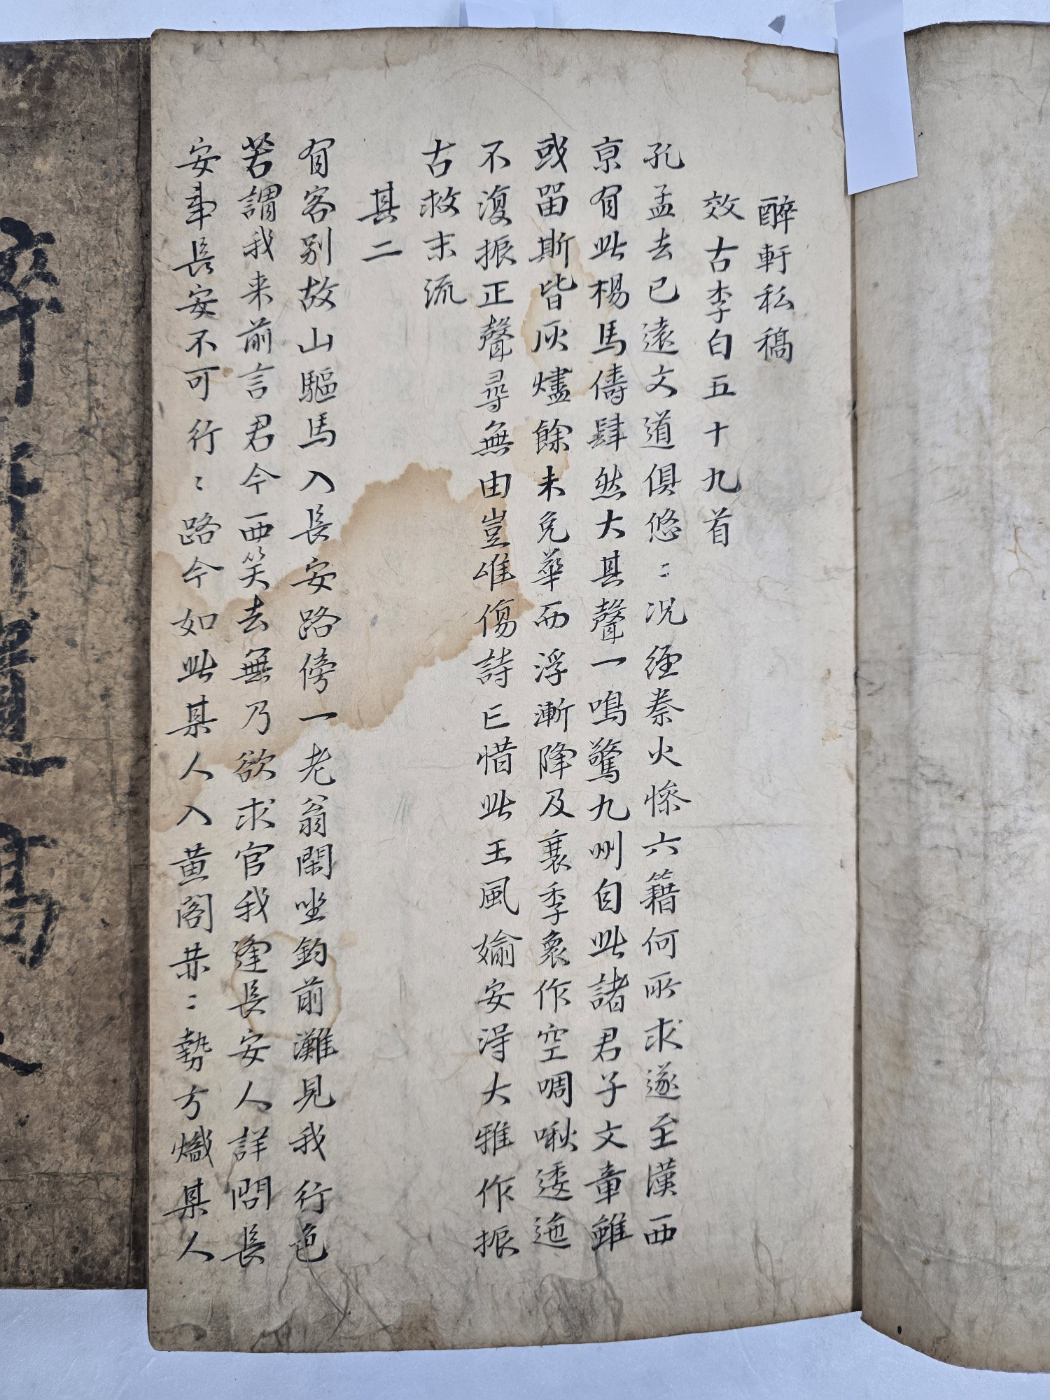 醉軒私稿
效古李白五十九首
孔孟去已遠文道俱悠〻況經秦火慘六籍何所求遂至漢西
京有此楊馬儔肆然大其聲一鳴驚九州自此諸君子文章雖
或留斯皆灰燼餘未免華而浮漸降及襄季衆作空啁啾逶迤
不復振正聲尋無由豈唯傷詩亡惜此王風渝安得大雅作振
古救末流
其二
有客別故山驅馬入長安路傍一老翁閑坐釣前灘見我行色
苦謂我来前言君今西笑去無乃欲求官我逢長安人詳問長
安事長安不可行〻路今如此某人入黃閣恭〻勢方熾某人
醉軒